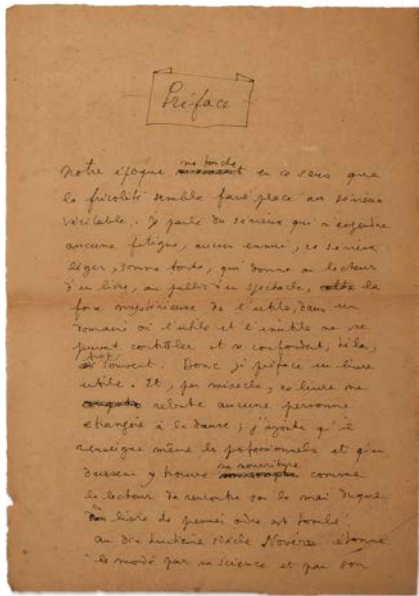 Préface
Notre époque me touche en ce sens que
la frivolité semble faire place au sérieux
véritable. Je parle du sérieux qui n'engendre
aucune fatigue, aucun ennui, ce sérieux
léger, somme toute, qui donne au lecteur
d'un livre, au public d'un spectacle, la
force mystérieuse de l'utile, dans un
domaine où l'utile et l'inutile ne se
peuvent contrôler et se confondent, hélas,
trop souvent. Donc je préface un livre
utile. Et, par miracle, ce livre ne
rebute aucune personne
étrangère à la danse, j'ajoute qu'il
renseigne même les professionnels et qu'un
danseur y trouve sa nourriture comme
le lecteur de rencontre sous la main duquel
livre de premier ordre est tombé.
au dix huitième siècle Novère étonne
le monde par sa science et par son